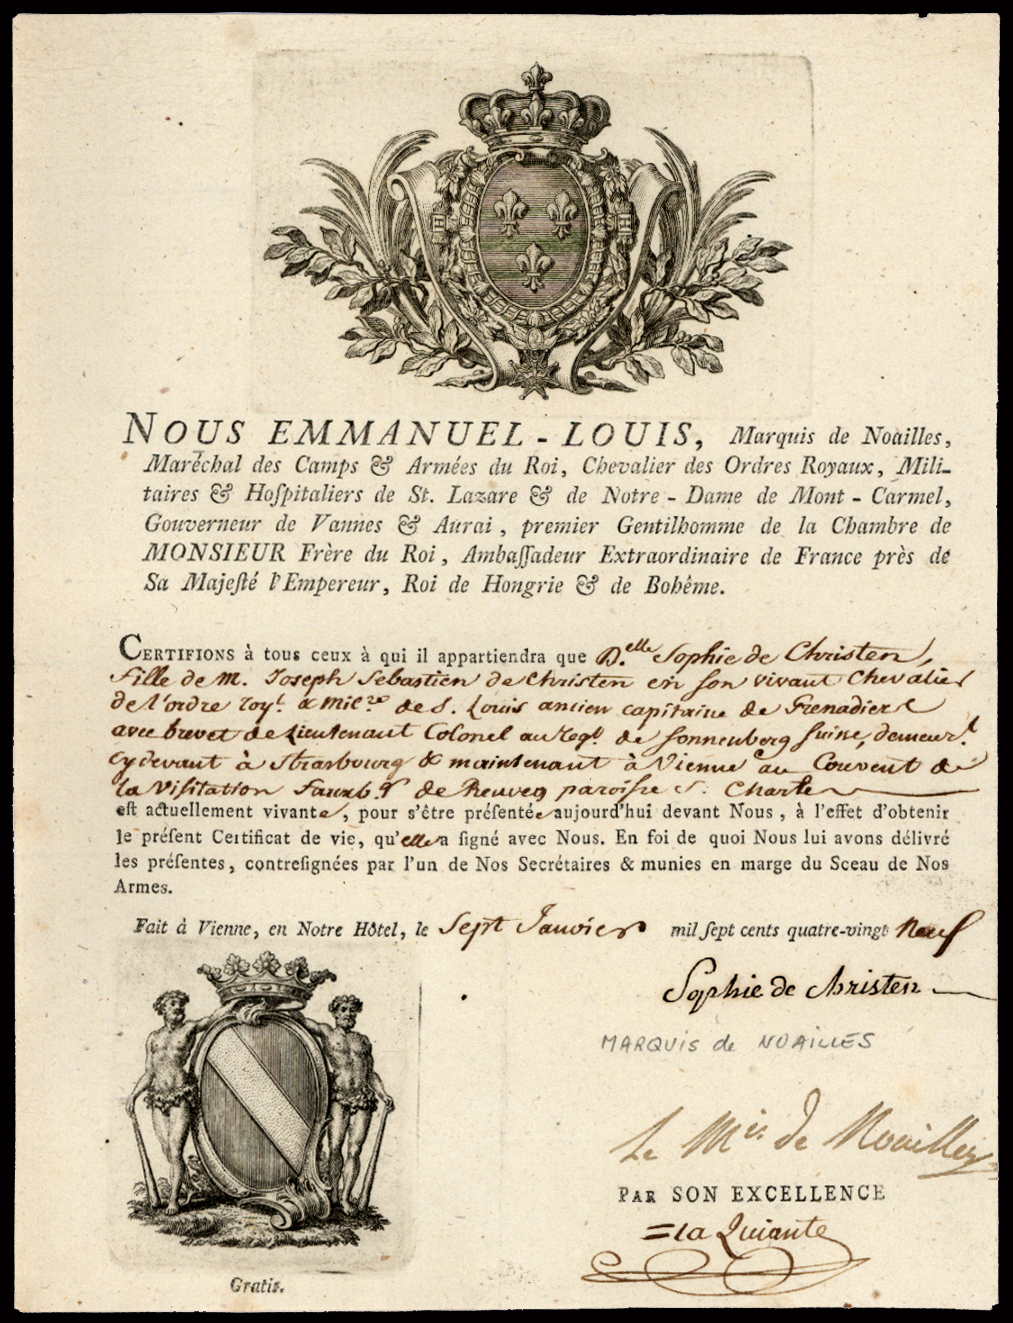 NOUS EMMANUEL - LOUIS, Marquis de Noailles,
Maréchal des Camps & Armées du Roi, Chevalier des Ordres Royaux, Mili-
taires & Hoſpitaliers de St. Lazare & de Notre - Dame de Mont - Carmel,
Gouverneur de Vannes & Aurai, premier Gentilhomme de la Chambre de
MONSIEUR Frère du Roi, Ambaſſadeur Extraordinaire de France près de
Sa Majeſté l'Empereur, Roi de Hongrie & de Bohême.
CERTIFIONS à tous ceux à qui il appartiendra que D.elle Sophie de Christen,
fille de M. Joseph Sebastien de Christen en son vivant Chevalier
de l'ordre roy.l & mil.re de S. Louis ancien capitaine de Grenadiers
avec brevet de Lieutenant Colonel au Reg.t de Sonnenberg Suise, demeur.t
cydevant à Strasbourg & maintenant à Vienne au Couvent de
la Visitation Fauxb.g de Renveg paroisse S. Charles
est actuellement vivante, pour s'être préſentée aujourd'hui devant Nous, à l'effet d'obtenir
le préſent Certificat de vie, qu'elle a ſigné avec Nous. En foi de quoi Nous lui avons délivré
les préſentes, contreſignées par l'un de Nos Secrétaires & munies en marge du Sceau de Nos
Armes.
Fait à Vienne, en Notre Hôtel, le Sept Janvier mil ſept cents quatre-vingt Neuf
Sophie de Christen
MARQUIS de NOAILLES
Le Mis de Noailles
PAR SON EXCELLENCE
=la Quiante
Gratis.